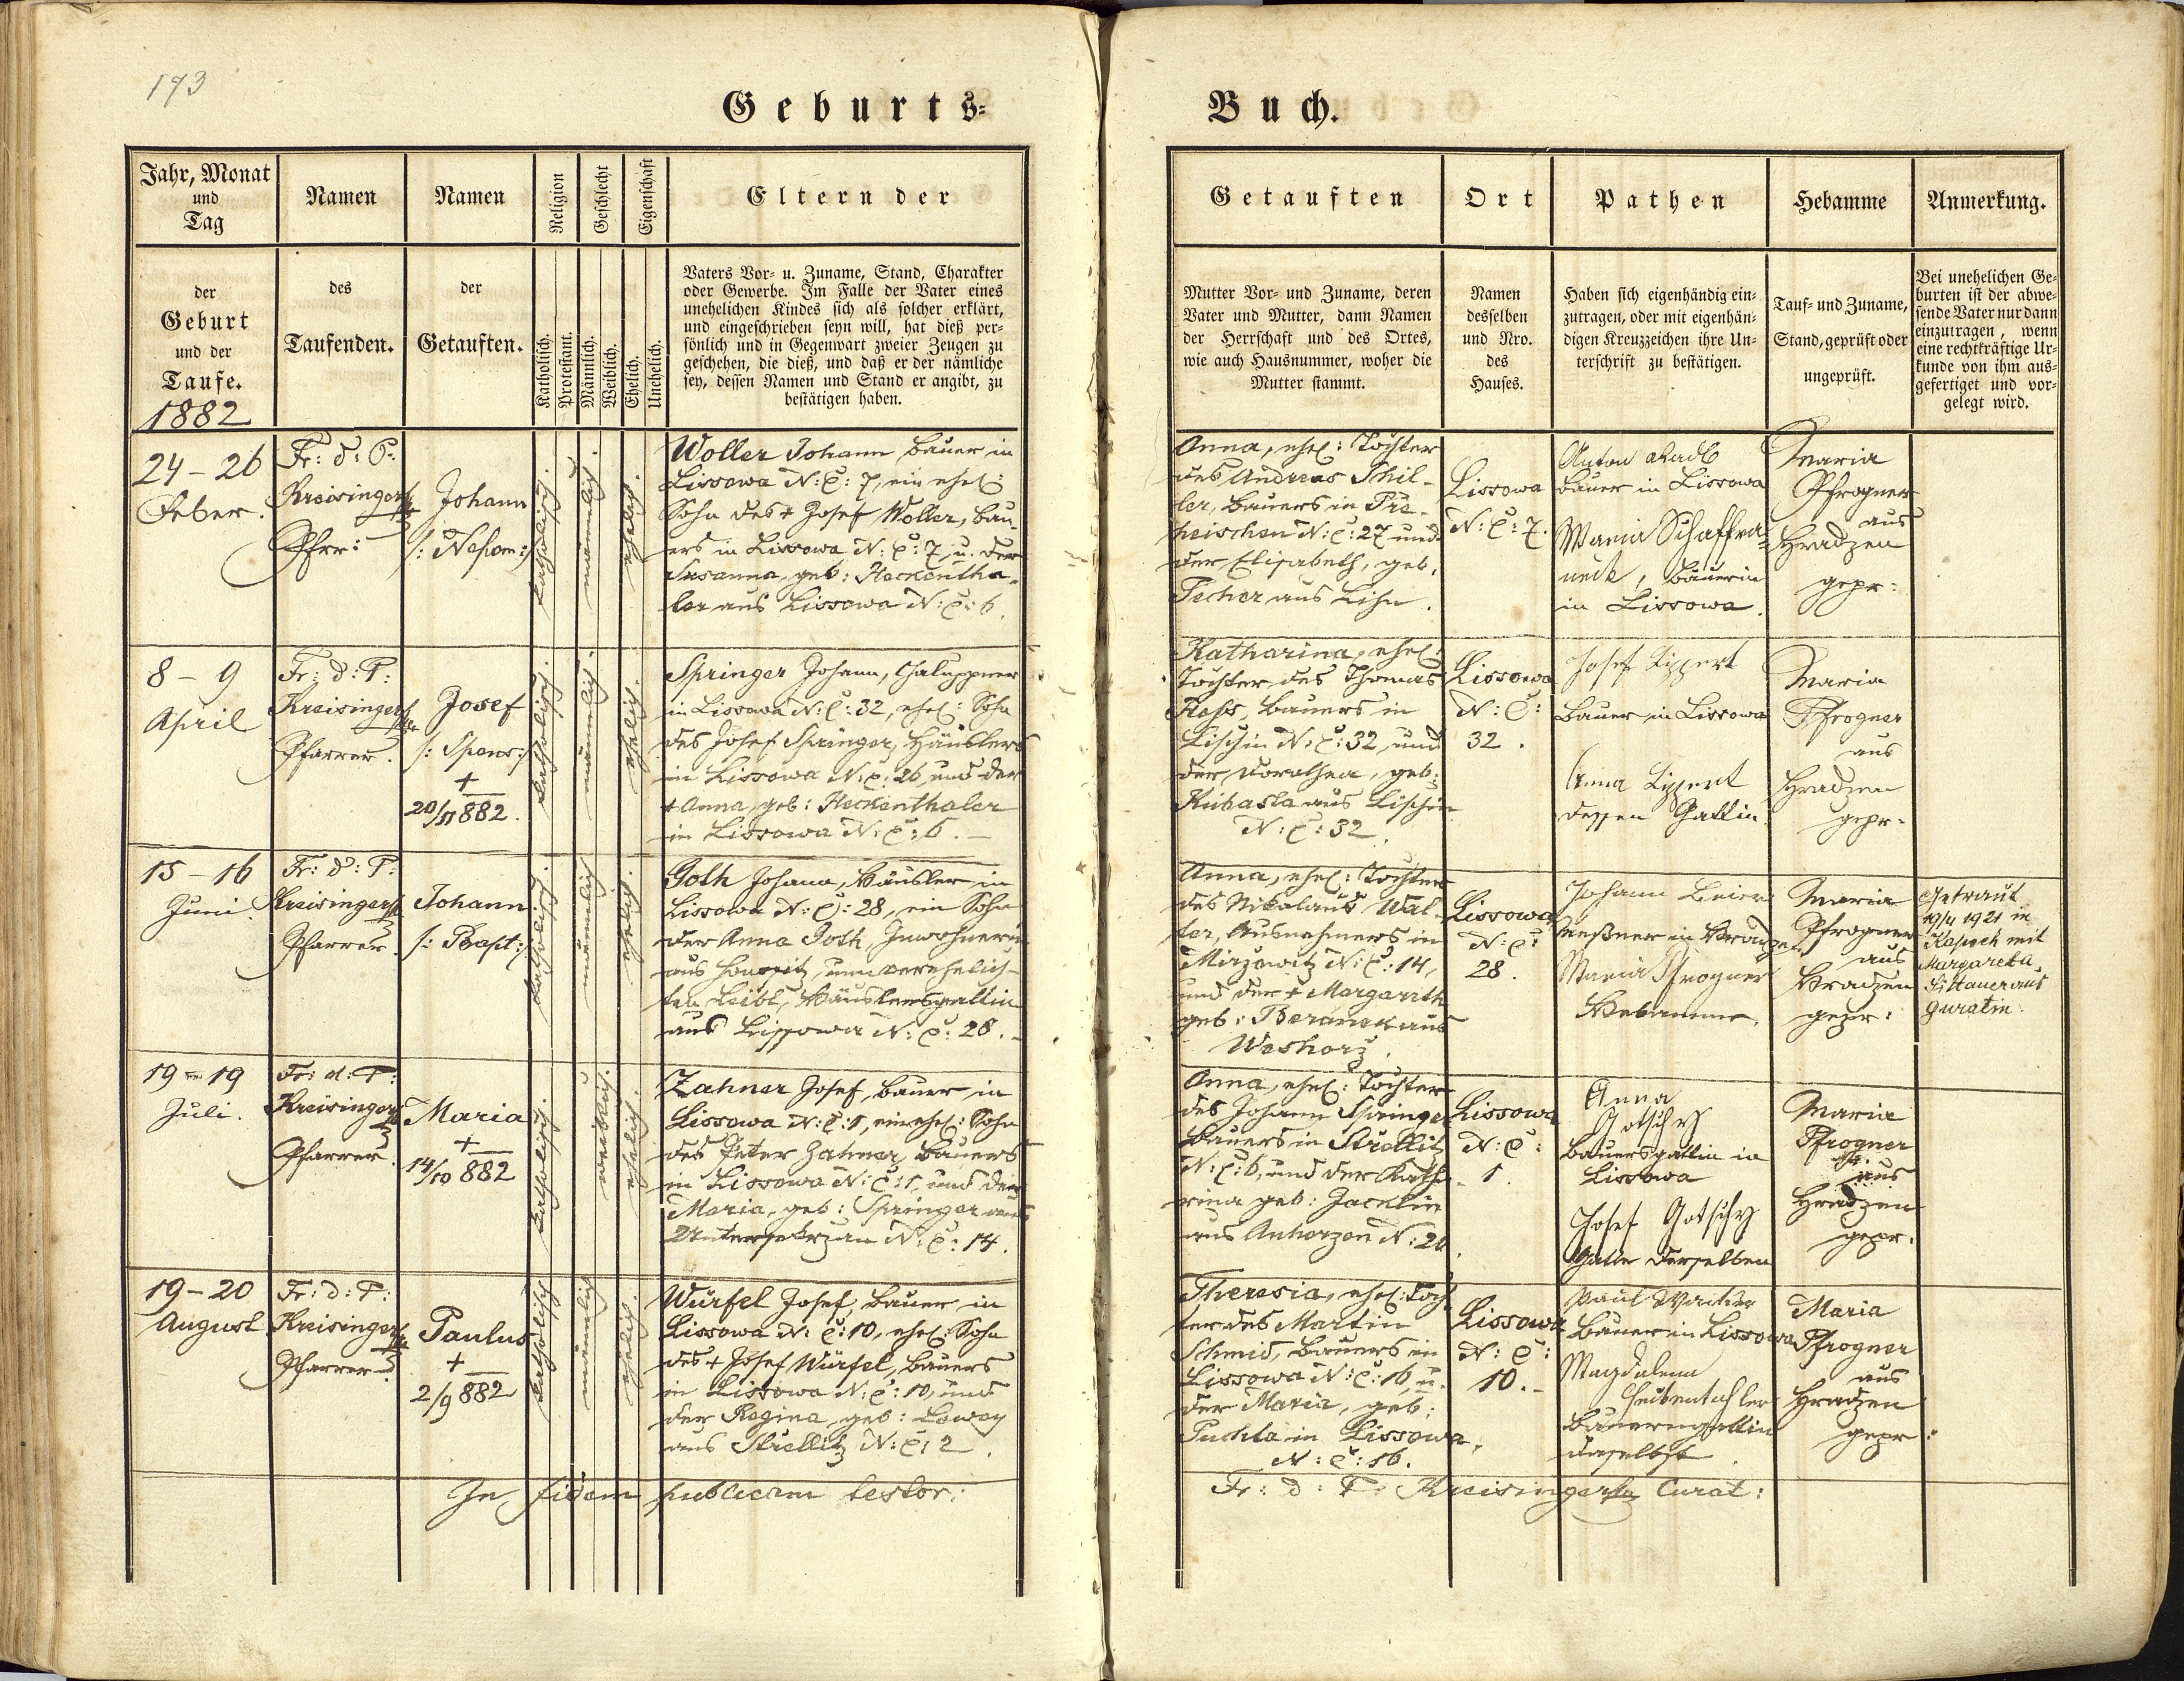 173
Geburts-
Buch.
Jahr, Monat
und
Tag
Namen
Namen
Religion
Geschlecht
Eigenschaft
Eltern der
der
Geburt
und der
Taufe.
1882
des
Taufenden.
der
Getauften.
Katholisch.
Protestant.
Männlich.
Weiblich.
Ehelich.
Unehelich.
Vaters Vor- u. Zuname, Stand, Charakter
oder Gewerbe. Im Falle der Vater eines
unehelichen Kindes sich als solcher erklärt,
und eingeschrieben seyn will, hat dieß per-
sönlich und in Gegenwart zweier Zeugen zu
geschehen, die dieß, und daß er der nämliche
sey, dessen Namen und Stand er angibt, zu
bestätigen haben.
Getauften
Ort
Pathen
Hebamme
Anmerkung.
Mutter Vor- und Zuname, deren
Vater und Mutter, dann Namen
der Herrschaft und des Ortes,
wie auch Hausnummer, woher die
Mutter stammt.
Namen
desselben
und Nro.
des
Hauses.
Haben sich eigenhändig ein-
zutragen, oder mit eigenhän-
digen Kreuzzeichen ihre Un-
terschrift zu bestätigen.
Tauf- und Zuname,
Stand, geprüft oder
ungeprüft.
Bei unehelichen Ge-
burten ist der abwe-
sende Vater nur dann
einzutragen, wenn
eine rechtkräftige Ur-
kunde von ihm aus-
gefertiget und vor-
gelegt wird.
24-26
Feber.
Fr: d: P:
Kreisinger
Pfrr:
Johann
/: Nepom:/
katholisch.
männlich.
ehelich.
Woller Johann, Bauer in
Lissowa N: C: 7, ein ehel:
Sohn des + Josef Woller, Bau-
ers in Lissowa N: C: 7, u. der
Susanna, geb: Heckentha-
ler aus Lissowa N: C: 6.
Anna, ehel: Tochter
des Andreas Schil-
ler, Bauers in Pre-
heischen N: C: 27 und
der Elisabeth, geb.
Techer aus Lihn.
Lissowa
N: C: 7.
Anton Radl
Bauer in Lissowa
Maria Schaffra-
neck, Bäuerin
in Lissowa.
Maria
Pfrogner
aus
Hradzen
gepr:
8-9
April
Fr: d: P:
Kreisinger
Pfarrer.
Josef
/: Spons:/
+
20/11 882.
katholisch.
männlich.
ehelich.
Springer Johann, Chaluppner
in Lissowa N: C: 32, ehel: Sohn
des Josef Springer, Häuslers
in Lissowa N: C: 26, und der
+ Anna, geb: Heckenthaler
in Lissowa N: C: 6.
Katharina, ehel:
Tochter des Thomas
Bauers in
Lischin N: C: 32, und
der Dorothea, geb:
Kubasta aus Lischin
N: C: 32.
Lissowa
N: C:
32.
Josef Lippert
Bauer in Lissowa
Anna Lippert
dessen Gattin.
Maria
Pfrogner
aus
Hradzen
gepr.
15-16
Juni.
Fr: d: P:
Kreisinger
Pfarrer.
Johann
/: Bapt:/
katholisch.
männlich
ehelich.
Goth Johann, Häusler in
Lissowa N: C: 28, ein Sohn
der Anna Goth, Inwohnerin
aus nun verehelich-
ten Leibl, Häuslersgattin
aus Lissowa N: C: 28.
Anna, ehel: Tochter
des Nikolaus Wal-
ter, Ausnehmers in
Mirzowitz N: C: 14,
und der + Margareth
geb: Beranek aus
Weshorz.
Lissowa
N: C:
28.
Johann Beier
Meßner in Hradzen
Maria Pfrogner
Hebamme.
Maria
Pfrogner
aus
Hradzen
gepr:
Getraut
19/4 1921 in
Kapsch mit
Margareta
aus
Guratin.
19-19
Juli.
Fr: d: P:
Kreisinger
Pfarrer.
Maria
+
14/10 882
katholisch.
weiblich.
ehelich.
Zahner Josef, Bauer in
Lissowa N: C: 1, ein ehel: Sohn
des Peter Zahner, Bauers
in Lissowa N: C: 1, und der
Maria, geb: Springer aus
Untersekrzan N: C: 14.
Anna, ehel: Tochter
des Johann Springer
Bauers in Strellitz
N: C: 6, und der Katha-
rina geb: Jacklin
aus Anherzen N: 20.
Lissowa
N: C:
1.
Anna
Gotschy
Bauersgattin in
Lissowa
Josef Gotschy
Gatte derselben
Maria
Pfrogner
aus
Hradzen
gepr.
19-20
August
Fr: d: P:
Kreisinger
Pfarrer
Paulus
+
2/9 882
katholisch
männlich
ehelich.
Würfel Josef, Bauer in
Lissowa N: C: 10, ehel: Sohn
des + Josef Würfel, Bauers
in Lissowa N: C: 10, und
der Regina, geb: Lowey
aus Strellitz N: C: 2.
Theresia, ehel: Toch-
ter des Martin
Schmid, Bauers in
Lissowa N: C: 16, u.
der Maria, geb:
Puchta in Lissowa,
N: C: 16.
Lissowa
N: C:
10.
Paul
Bauer in Lissowa
Magdalena
Bauersgattin
daselbst.
Maria
Pfrogner
aus
Hradzen
gepr:
In fidem publicam testor:
Fr: d: P: Kreisinger Curat: